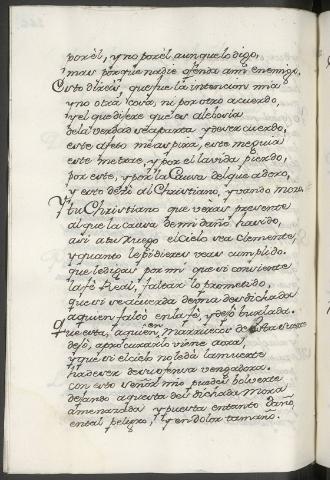 por èl, y no por èl aunque lo digo,
mas porque nadie ofenda a mi enemigo.
Esto direis, que fue la intencion mia
y no otra cosa, ni por otro acuerdo,
y el que dixere que es alebosia
de la verdad se aparta, y desacuerdo,
este afeto me aspira, este me guia
este me trae, y por el la vida pierdo,
por este, y por la Causa del que adoro,
y esto dexò al Christiano, y
Y tu Christiano que veras presente
al que la causa de mi daño ha sido,
asi a tu Ruego el Cielo sea Clemente,
y quanto le pidieres veas cumplido.
que le digas por mi que si consiente
la fè Real, faltar lo prometido,
que si se acuerda de una desdichada
a quien faltò en la fè, y dejò burlada.
Que esta, a quien en Marruecos de esta suerte
dejò, a procurarlo viene aora,
y que si el cielo no le dà la muerte
ha de ser de su ofensa vengadora.
con esto señor mio puedes bolverte
dejando aquesta desdichada Mora
amenazada y puesta en tanto daño,
en tal peligro, y en dolor tamaño.